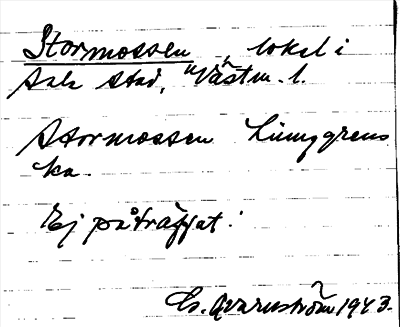 Stormossen, lokal i
Sala stad, Västm. l.
Stormossen Ljunggrens
ka.
Ej påträffat.
G. Qvarnström 1943.